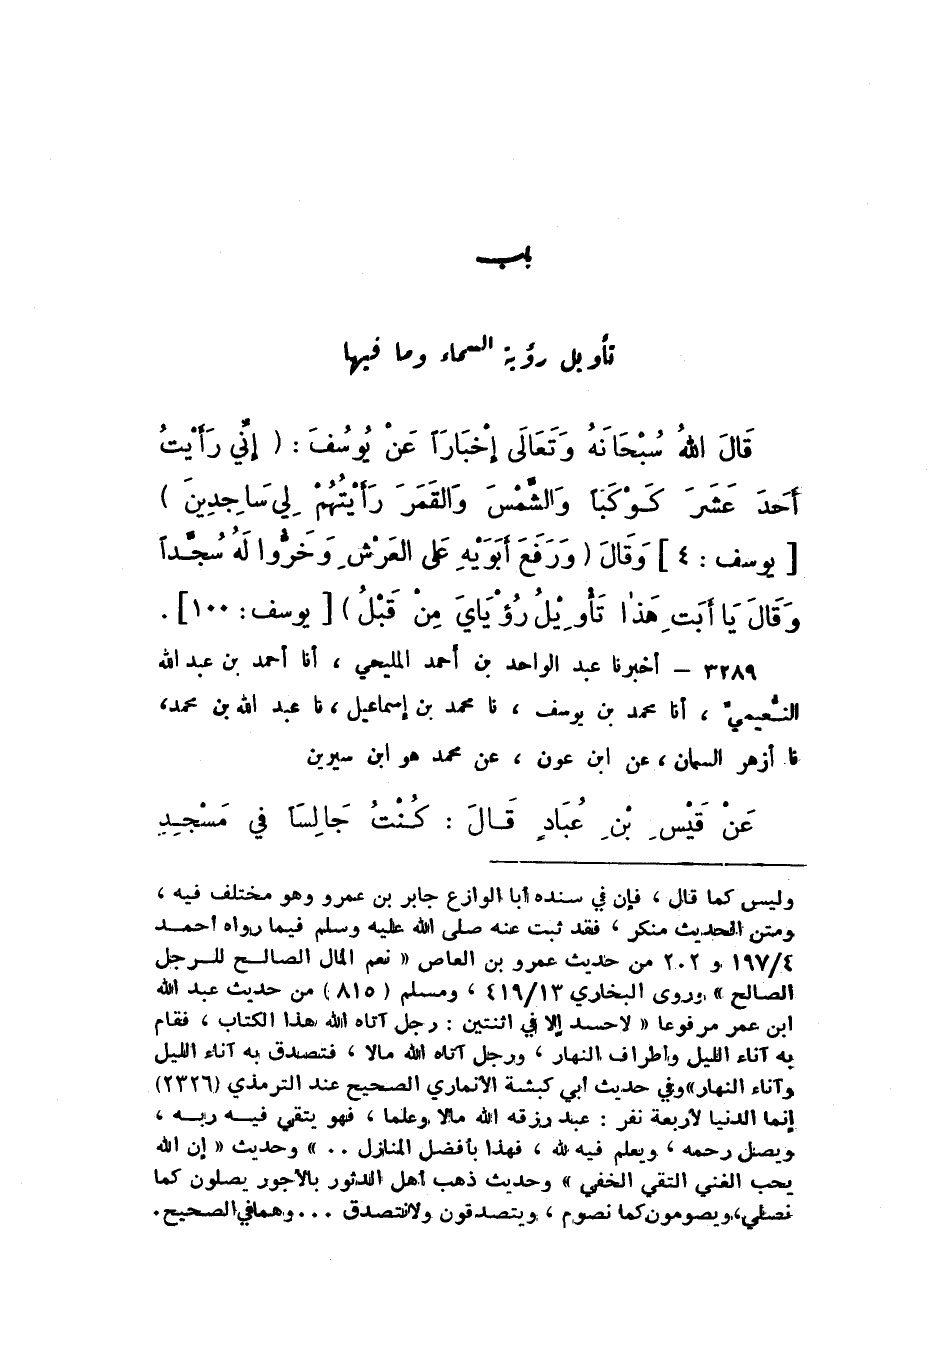 باب
تأويل رؤية السماء وما فيها
قَالَ اللهُ سُبْحَانَهُ وَتَعَالَى إِخْبَارَاً عَنْ يُوسُفَ : ( إِنِّي رَأَيْتُ
أَحَدَ عَشَرَ كَوْكَبَاً وَالشَّمْسَ وَالقَمَرَ رَأَيْتُهُمْ لِي سَاجِدِينَ )
[ يوسف : ٤ ] وَقَالَ ( وَرَفَعَ أَبَوَيْهِ عَلَى العَرْشِ وَخَرُّوا لَهُ سُجَّداً
وَقَالَ يَا أَبَتِ هَذَا تَأْوِيْلُ رُؤْيَايَ مِنْ قَبْلُ ) [ يوسف : ١٠٠ ] .
٣٢٨٩ – أخبرنا عبد الواحد بن أحمد المليحي ، أنا أحمد بن عبد الله
النُّعيمي ، أنا محمد بن يوسف ، نا محمد بن إسماعيل ، نا عبد الله بن محمد،
نا أزهر السمان ، عن ابن عون ، عن محمد هو ابن سيرين
عَنْ قَيْسِ بْنِ عُبَادٍ قَالَ : كُنْتُ جَالِسَاً فِي مَسْجِدِ
وليس كما قال ، فإن في سنده أبا الوازع جابر بن عمرو وهو مختلف فيه ،
ومتن الحديث منكر ، فقد ثبت عنه صلى الله عليه وسلم فيما رواه أحمد
١٩٧/٤ و ٢٠٢ من حديث عمرو بن العاص « نعم المال الصالح للرجل
الصالح » وروى البخاري ٤١٩/١٣ ، ومسلم ( ٨١٥ ) من حديث عبد الله
ابن عمر مرفوعا « لاحسد إلا في اثنتين : رجل آتاه الله هذا الكتاب ، فقام
به آناء الليل وأطراف النهار ، ورجل آتاه الله مالا ، فتصدق به آناء الليل
وآناء النهار» وفي حديث أبي كبشة الأنماري الصحيح عند الترمذي (٢٣٢٦)
إنما الدنيا لأربعة نفر : عبد رزقه الله مالا وعلما ، فهو يتقي فيه ربه ،
ويصل رحمه ، ويعلم فيه لله ، فهذا بأفضل المنازل .. » وحديث « إن الله
يحب الغني التقي الخفي » وحديث ذهب أهل الدثور بالأجور يصلون كما
نصلي ، ويصومون كما نصوم ، ويتصدقون ولانتصدق ... وهما في الصحيح .